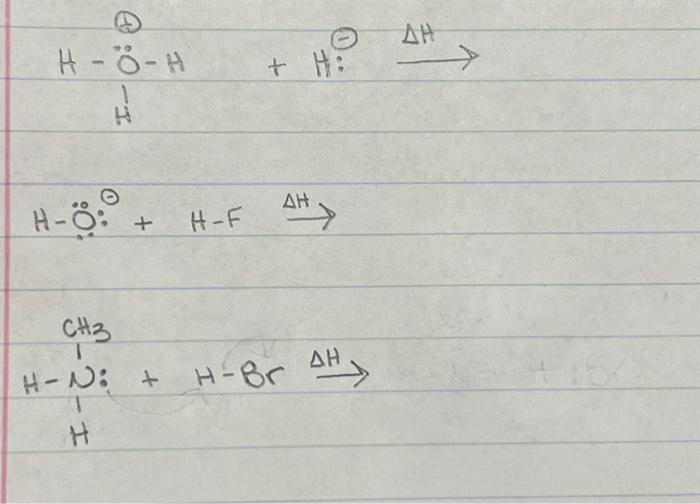 ⊕
H - Ö - H + H:⊖ ΔH →
H
H - Ö:⊖ + H - F ΔH →
CH3
H - N: + H - Br ΔH →
H